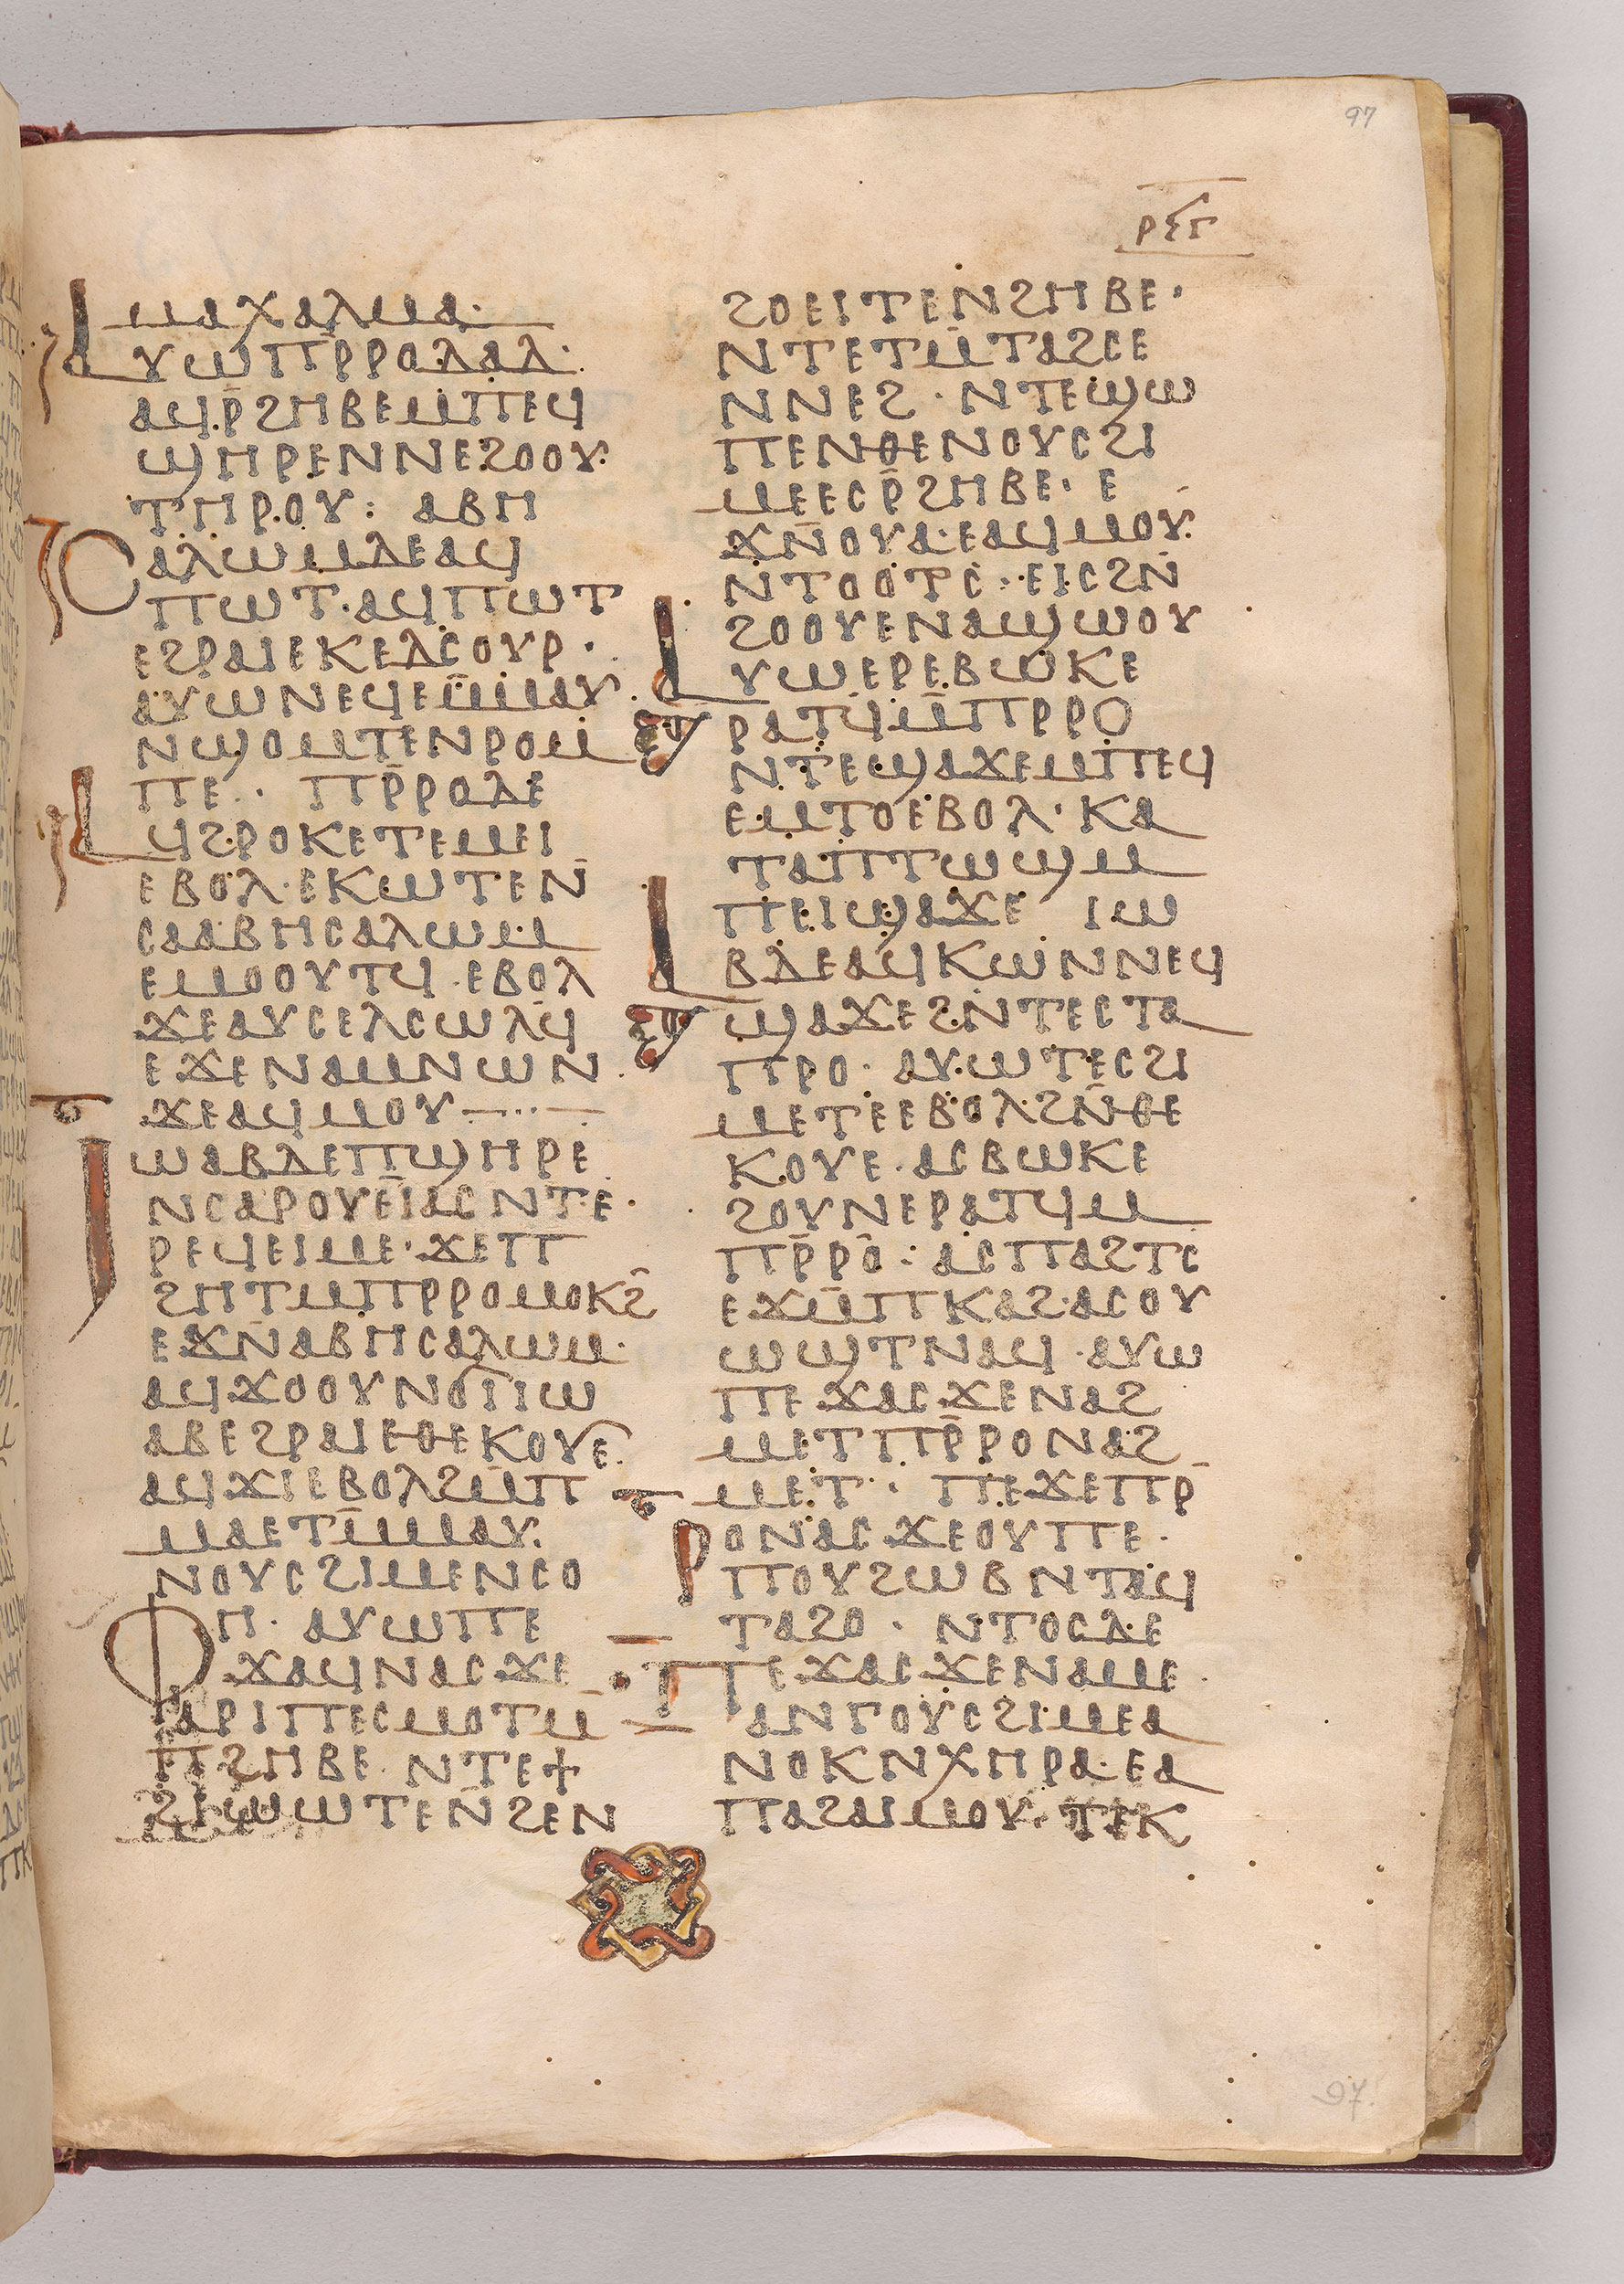 97
ⲣϥⲅ
ⲙⲁⲭⲁⲗⲙⲁ·
ⲁⲩⲱⲡⲣⲣⲟⲇⲁⲇ·
ⲁϥⲣ̄ϩⲏⲃⲉⲙ̄ⲡⲉϥ
ϣⲏⲣⲉⲛⲛⲉϩⲟⲟⲩ·
ⲧⲏⲣⲟⲩ: ⲁⲃⲏ
ⲥⲁⲗⲱⲙⲇⲉⲁϥ
ⲡⲱⲧ·ⲁϥⲡⲱⲧ
ⲉϩⲣⲁⲓⲉⲕⲉⲇⲥⲟⲩⲣ·
ⲁⲩⲱⲛⲉϥⲉⲙ̄ⲙⲁⲩ·
ⲛϣⲟⲙⲧⲉⲛⲣⲟⲙ
ⲡⲉ· ⲡⲣ̄ⲣⲟⲇⲉ
ⲁϥϩⲣⲟⲕⲉⲧⲉⲙⲉⲓ
ⲉⲃⲟⲗ·ⲉⲕⲱⲧⲉⲛ̄
ⲥⲁⲁⲃⲏⲥⲁⲗⲱⲙ
ⲉⲙⲟⲟⲩⲧϥ·ⲉⲃⲟⲗ
ϫⲉⲁⲩⲥⲉⲗⲥⲱⲗϥ
ⲉϫⲉⲛⲁⲙⲛⲱⲛ·
ϫⲉⲁϥⲙⲟⲩ—··—
ⲓⲱⲁⲃⲇⲉⲡϣⲏⲣⲉ
ⲛⲥⲁⲣⲟⲩⲉⲓ̈ⲁⲥⲛⲧⲉ·
ⲣⲉϥⲉⲓⲙⲉ·ϫⲉⲡ
ϩⲏⲧⲙ̄ⲡⲣⲣⲟⲙⲟⲕϩ̄
ⲉϫⲛ̄ⲁⲃⲏⲥⲁⲗⲱⲙ·
ⲁϥϫⲟⲟⲩⲛϭⲓⲓⲱ
ⲁⲃⲉϩⲣⲁⲓⲉⲑⲉⲕⲟⲩⲉ·
ⲁϥϫⲓⲉⲃⲟⲗϩⲙ̄ⲡ
ⲙⲁⲉⲧⲙ̄ⲙⲁⲩ·
ⲛⲟⲩⲥϩⲓⲙⲉⲛⲥⲟ
ⲫⲏ· ⲁⲩⲱⲡⲉ
ϫⲁϥⲛⲁⲥϫⲉ
ⲁⲣⲓⲡⲉⲥⲙⲟⲧⲙ̄
ⲡϩⲏⲃⲉ·ⲛⲧⲉϯ
ϩⲓⲱⲱⲧⲉⲛ̄ϩⲉⲛ
ϩⲟⲉⲓⲧⲉⲛϩⲏⲃⲉ·
ⲛⲧⲉⲧⲙ̄ⲧⲁϩⲥⲉ
ⲛⲛⲉϩ·ⲛⲧⲉϣⲱ
ⲡⲉⲛⲑⲉⲛⲟⲩⲥϩⲓ
ⲙⲉⲉⲥⲣ̄ϩⲏⲃⲉ· ⲉ
ϫⲛ̄ⲟⲩⲁ·ⲉⲁϥⲙⲟⲩ·
ⲛⲧⲟⲟⲧⲥ:·ⲉⲓⲥϩⲛ̄
ϩⲟⲟⲩⲉⲛⲁϣⲱⲟⲩ
ⲁⲩⲱⲉⲣⲉⲃⲱⲕⲉ
ⲣⲁⲧϥⲙ̄ⲡⲣⲣⲟ
ⲛⲧⲉϣⲁϫⲉⲙ̄ⲡⲉϥ
ⲉⲙⲧⲟⲉⲃⲟⲗ·ⲕⲁ
ⲧⲁⲡⲧⲱϣⲙ
ⲡⲉⲓϣⲁϫⲉ ⲓⲱ
ⲁⲃⲇⲉⲁϥⲕⲱⲛⲛⲉϥ
ϣⲁϫⲉϩⲛⲧⲉⲥⲧⲁ
ⲡⲣⲟ·ⲁⲩⲱⲧⲉⲥϩⲓ
ⲙⲉⲧⲉⲉⲃⲟⲗϩⲛ̄ⲑⲉ
ⲕⲟⲩⲉ·ⲁⲥⲃⲱⲕⲉ
ϩⲟⲩⲛⲉⲣⲁⲧϥⲙ
ⲡⲣ̄ⲣⲟ̄:ⲁⲥⲡⲁϩⲧⲥ
ⲉϫⲙ̄ⲡⲕⲁϩ·ⲁⲥⲟⲩ
ⲱϣⲧⲛⲁϥ·ⲁⲩⲱ
ⲡⲉϫⲁⲥϫⲉⲛⲁϩ
ⲙⲉⲧⲡⲣ̄ⲣⲟⲛⲁϩ
ⲙⲉⲧ· ⲡⲉϫⲉⲡⲣ̄
ⲣⲟⲛⲁⲥϫⲉⲟⲩⲡⲉ·
ⲡⲟⲩϩⲱⲃⲛⲧⲁϥ
ⲧⲁϩⲟ·ⲛⲧⲟⲥⲇⲉ
ⲡⲉϫⲁⲥϫⲉⲛⲁⲙⲉ·
ⲁⲛⲅⲟⲩⲥϩⲓⲙⲉⲁ
ⲛⲟⲕⲛⲭⲏⲣⲁ·ⲉⲁ
ⲡⲁϩⲁⲓⲙⲟⲩ·ⲧⲉⲕ
97